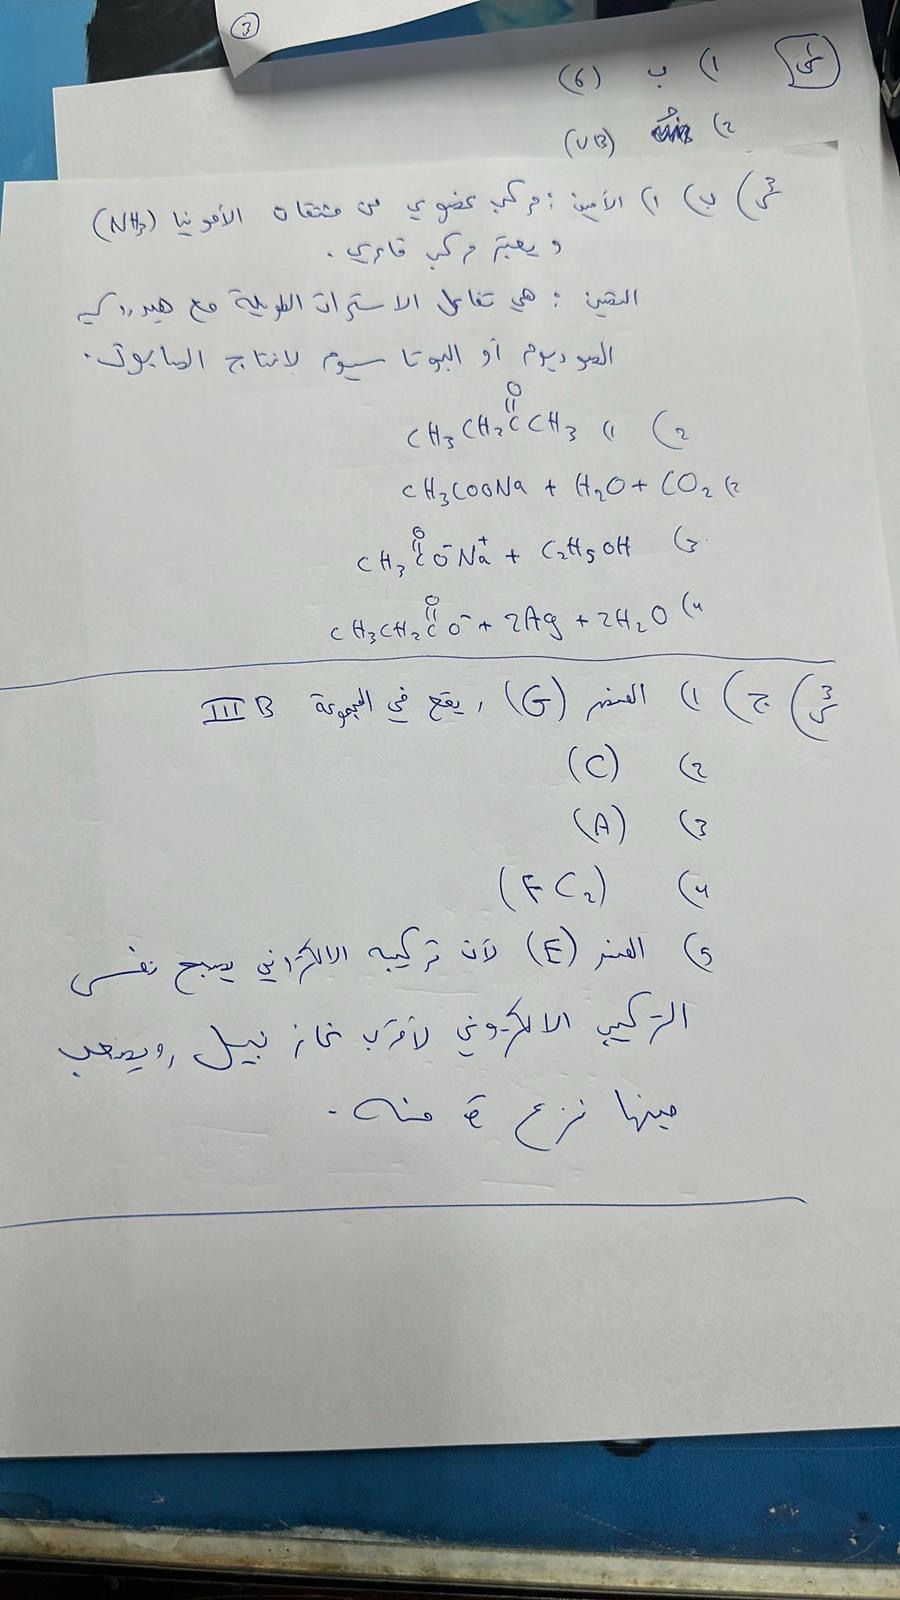 (3)
س1) 1) ب (6)
2) (VB)
س3) ب) 1) الأمين : مركب عضوي من مشتقات الأمونيا (NH3)
و يعتبر مركب قاعدي .
التصبن : هي تفاعل الاسترات الطويلة مع هيدروكسيد
الصوديوم أو البوتاسيوم لإنتاج الصابون .
2) 1) CH3CH2C(=O)CH3
2) CH3COONa + H2O + CO2
3) CH3C(=O)O⁻Na⁺ + C2H5OH
4) CH3CH2C(=O)O⁻ + 2Ag + 2H2O
س3) ج) 1) العنصر (G) ، يقع في المجموعة IIIB
2) (C)
3) (A)
4) (FC2)
5) العنصر (E) لأن تركيبه الالكتراني يصبح نفس
التركيب الالكتروني لأقرب غاز نبيل ، ويصعب
حينها نزع e⁻ منه .